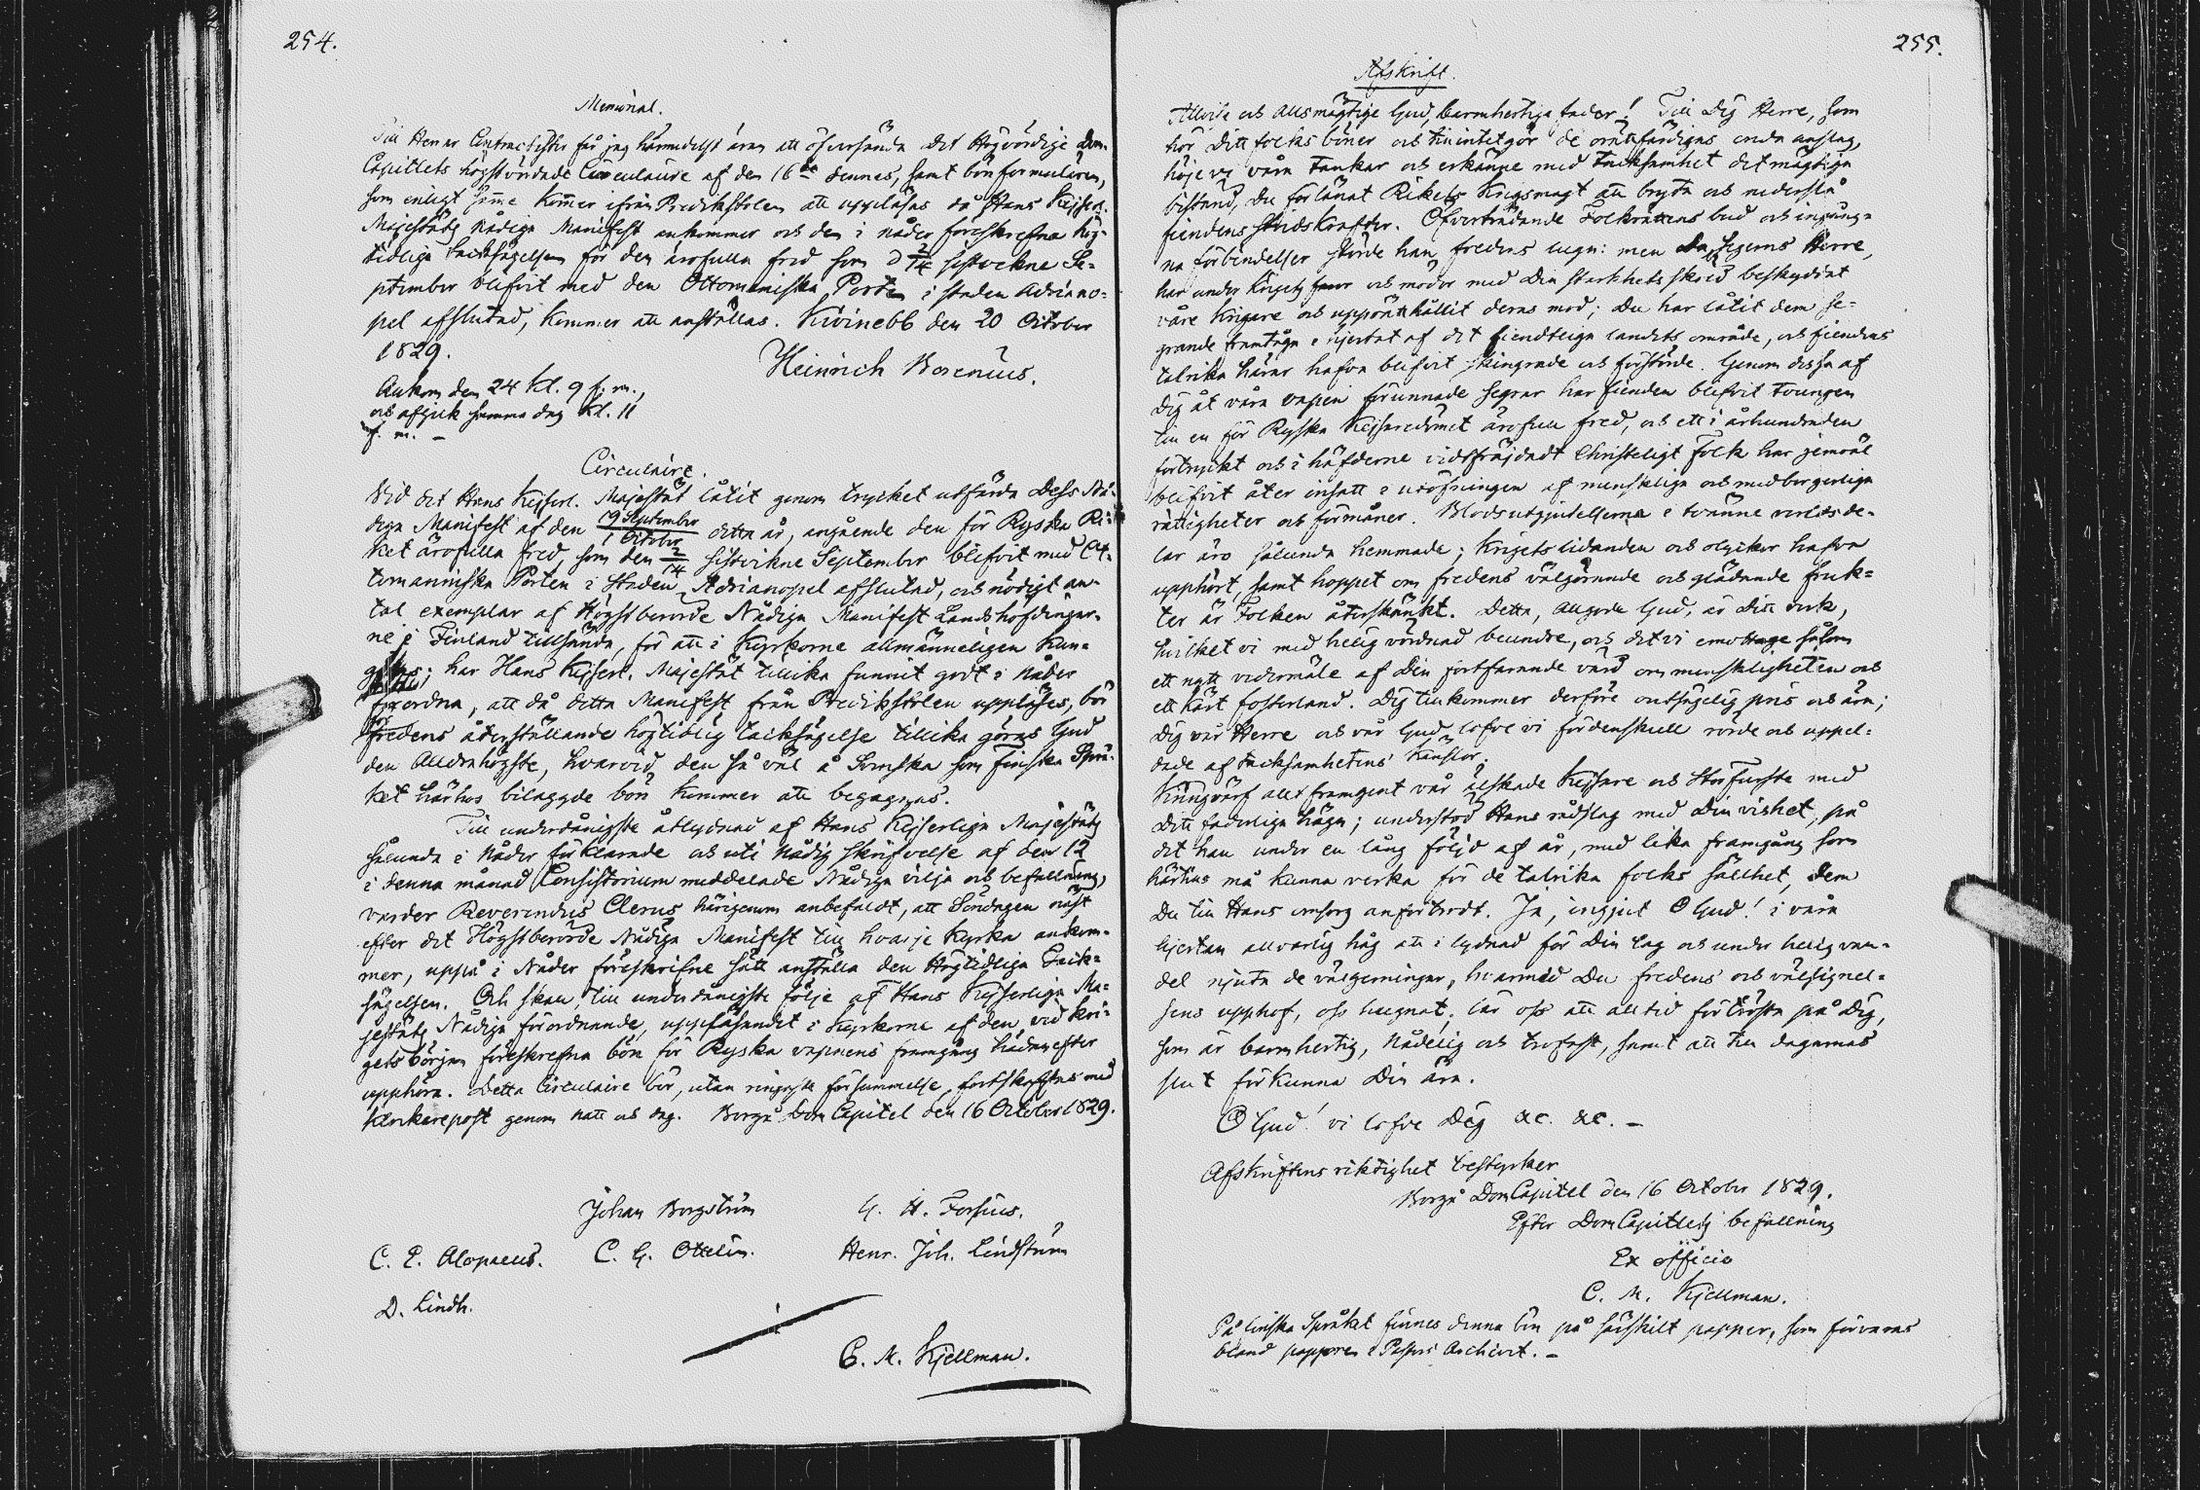 254.
Memorial.
Till Herrar Contractister får jag härmedelst äran att öfversända det Högvördige Dom-
Capitlets högstvördade Circulaire af den 16de dennes, samt bönformulären,
som enligt samme kommer ifrån Predikstolen att uppläsas då Hans Kejserl.
Majestäts Nådiga Manifest ankommer och den i nåder föreskrefna hög-
tidliga tacksägelsen för den ärofulla fred som d 2/14 sistvekne Se-
ptember blifvit med den Ottomaniska Porten i staden Adriano-
pel afslutad, kommer att anställas. Kivinebb den 20 October
1829.
Heinrich Borenius.
Ankom den 24 kl. 9 f. m.,
och afgick samma dag kl. 11
f. m. –
Circulaire.
Vid det Hans Kejserl. Majestät låtit genom trycket utfärda Dess Nå-
diga Manifest af den 19 September / 1 October detta år, angående den för Ryska Ri-
ket ärofulla fred som den 2/14 sistvikne September blifvit med Ot-
tomanniska Porten i Staden Adrianopel afslutad, och nödigt an-
tal exemplar af Högstberörde Nådiga Manifest Landshöfdingar-
ne i Finland tillsända, för att i Kyrkorne allmänneligen kun-
göras; har Hans Kejserl. Majestät tillika funnit godt i Nåder
förordna, att då detta Manifest från Predikstolen uppläses, bör
för fredens återställande högtidlig tacksägelse tillika göras Gud
den Alldrahögste, hvarvid den så väl å Svenska som finska Språ-
ket härhos bilagde bön kommer att begagnas.
Till underdånigste åtlydnad af Hans Kejserliga Majestäts
sålunda i Nåder förklarade och uti Nådig skrifvelse af den 12
i denna månad Consistorium meddelade Nådiga vilja och befallning,
varder Reverendus Clerus härigenom anbefaldt, att Söndagen näst
efter det Högstberörde Nådiga Manifest till hvarje Kyrka ankom-
mer, uppå i Nåder föreskrifne sätt anställa den Högtidliga Tack-
sägelsen. Och skall, till underdånigste följe af Hans Kejserliga Ma-
jestäts Nådiga förordnande, uppläsandet i Kyrkorne af den, vid kri-
gets början föreskrefna bön för Ryska vapnens framgång hädanefter
upphöra. Detta Circulaire bör, utan ringaste försummelse, fortskaffas med
Klockarepost genom natt och dag. Borgå Dom Capitel den 16 October 1829.
Johan Borgström G. H. Forsius.
C. E. Alopaeus. C. G. Ottelin. Henr. Joh. Lindström
D. Lindh.
C. M. Kjellman.
255.
Afskrift.
Allvise och Allsmägtige Gud, barmhertige fader! Till Dig Herre, som
hör Ditt folks böner och tillintetgör de orättfärdigas onda anslag,
höje vi våra tankar och erkänne med tacksamhet det mägtiga
bistånd, Du förlänat Rikets Krigsmagt att bryta och nederslå
fiendens stridskrafter. Öfverträdande Folkrättens bud och ingång-
na förbindelser störde han fredens lugn: men Du, Segerns Herre,
har under krigets faror och mödor med Din starkhets sköld beskyddat
våre Krigare och upprätthållit deras mod; Du har låtit dem se-
grande framtåga i hjertat af det fiendtliga landets område, och fiendens
talrika härar hafva blifvit skingrade och förstörde. Genom dessa af
Dig åt våra vapen förunnade segrar har fienden blifvit tvungen
till en för Ryska Kejsaredömet ärofull fred, och ett i århundraden
förtryckt och i häfderne vidtfräjdadt Christeligt Folk har jemväl
blifvit åter insatt i utöfningen af menskliga och medborgerliga
rättigheter och förmåner. Blodsutgjutelserna i tvänne verldsde-
lar äro sålunda hemmade; Krigets lidanden och olyckor hafva
upphört, samt hoppet om fredens välgörande och glädande fruk-
ter är Folken återskänkt. Detta, allgode Gud, är Ditt verk,
hvilket vi med helig vördnad beundre, och det vi emottage såsom
ett nytt vedermäle af Din fortfarande vård om menskligheten och
ett kärt fosterland. Dig tillkommer derföre outsägelig pris och ära;
Dig vår Herre och vår Gud, lofve vi fördenskull rörde och uppel-
dade af tacksamhetens känslor.
Kringvärf allt framgent vår älskade Kejsare och Storfurste med
Ditt faderliga hägn; understöd Hans rådslag med Din vishet, på
det han under en lång följd af år, med lika framgång som
härtills må kunna verka för de talrika folks sällhet, dem
Du till Hans omsorg anförtrodt. Ja, ingjut O Gud! i våra
hjertan allvarlig håg att i lydnad för Din lag och under helig van-
del njuta de välgerningar, hvarmed Du fredens och välsignel-
sens upphof, oss hugnat; lär oss att alltid förtrösta på Dig,
som är barmhertig, Nådelig och trofast, samt att till dagarnas
slut förkunna Din ära.
O Gud! vi lofve Dig &c. &c. –
Afskriftens riktighet bestyrker
Borgå DomCapitel den 16 October 1829.
Efter DomCapitlets befallning
Ex officio
C. M. Kjellman.
På finska Språket finnes denna bön på särskilt papper, som förvaras
bland papperen i Pastors Archivet. –